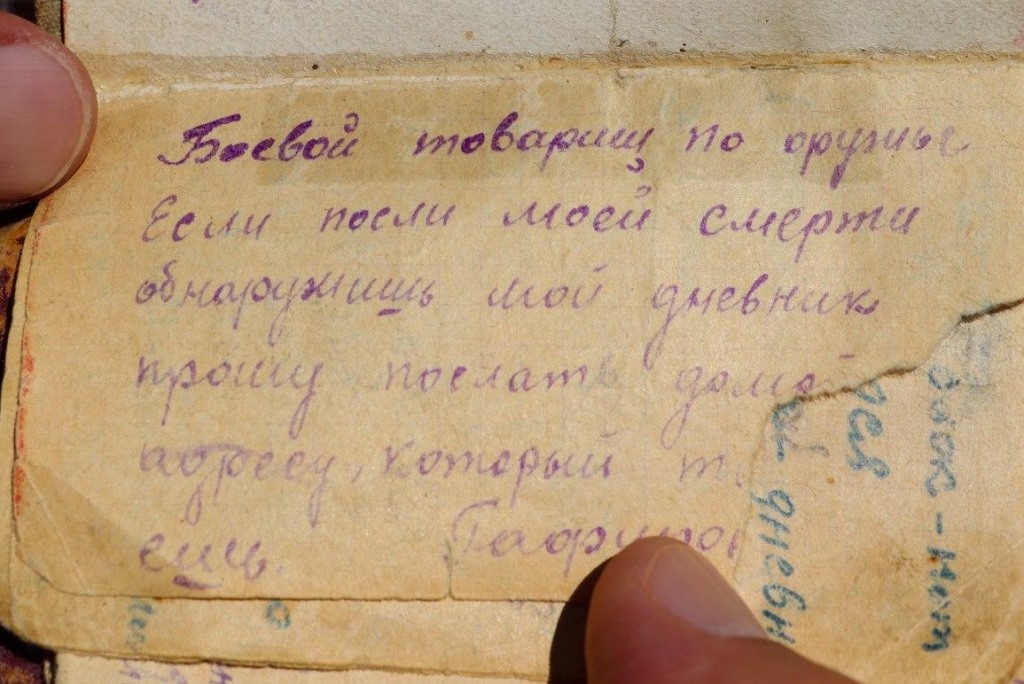 Боевой товарищ по оружье
Если посли моей смерти
обнаружишь мой дневник
прошу послать домой
адресу, который т
ешь.
дневн